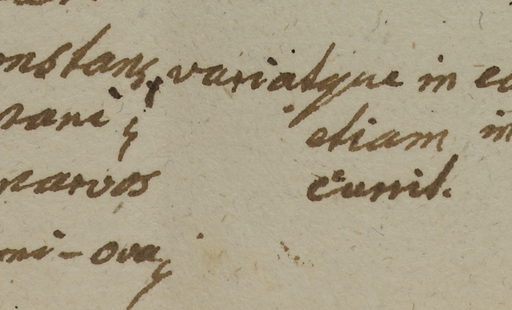 onstans, variatque in ea
rani; etiam in
narvos cunil.
mi-ova;